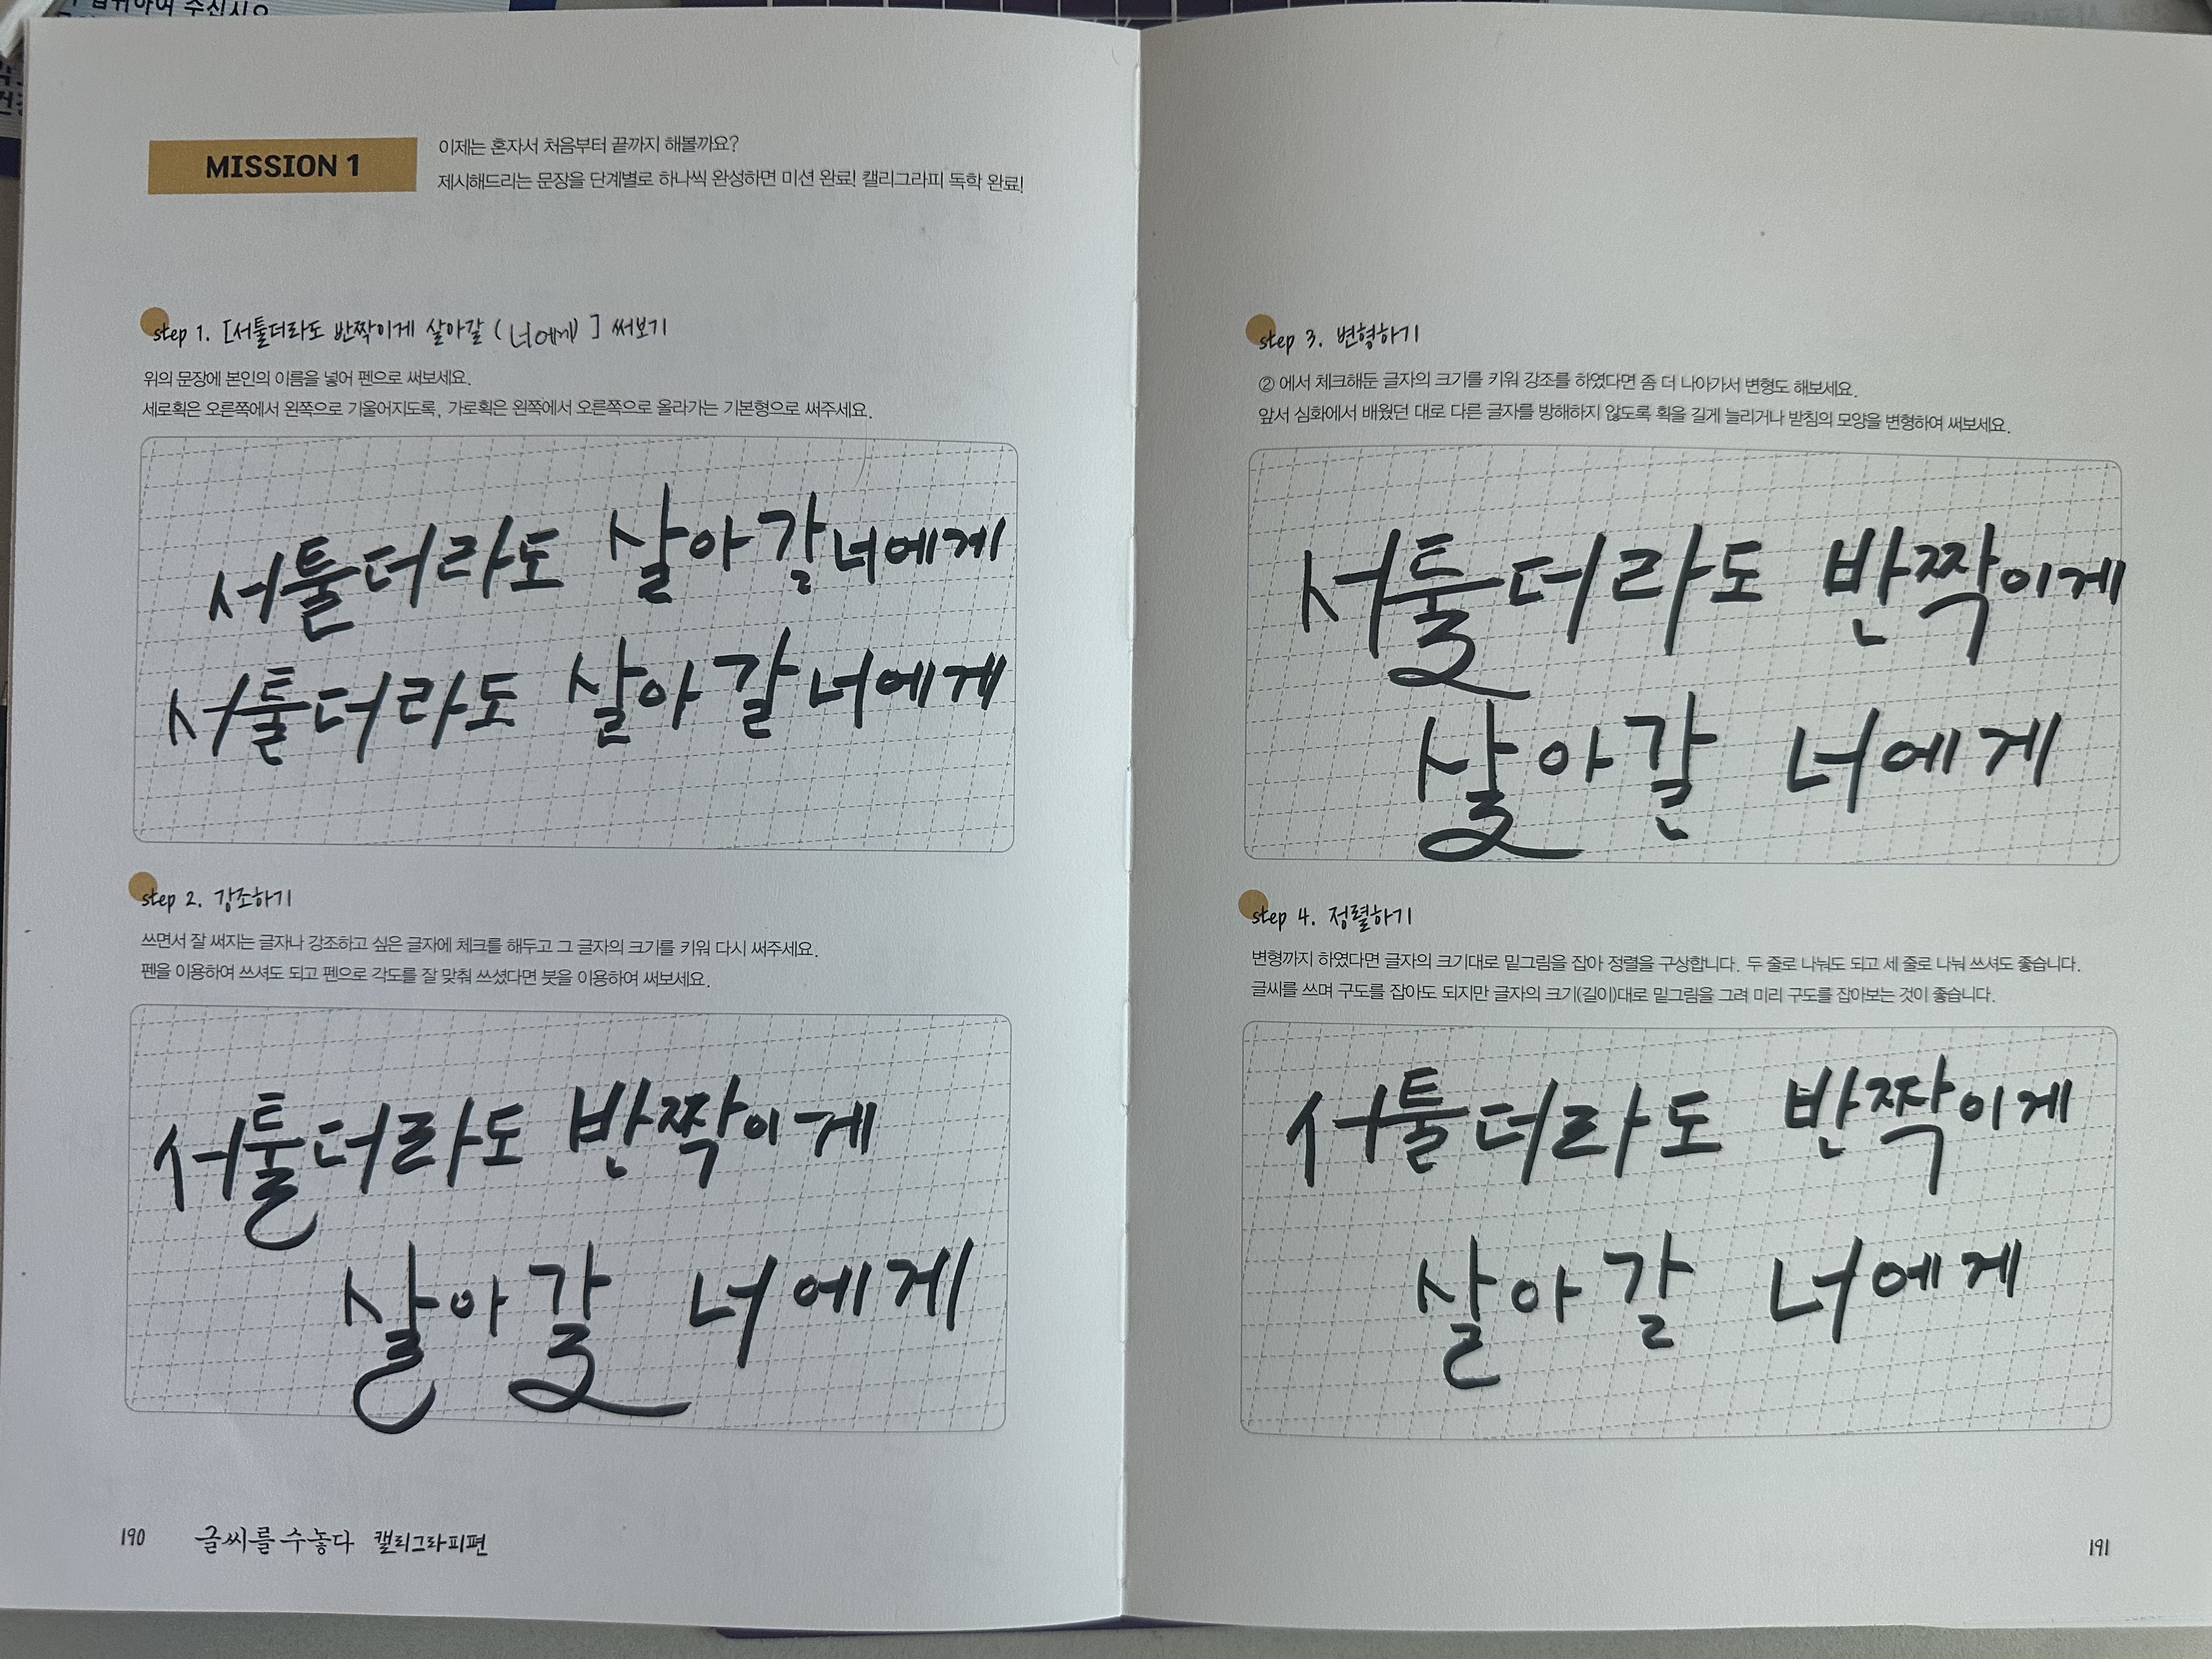 MISSION 1
이제는 혼자서 처음부터 끝까지 해볼까요?
제시해드리는 문장을 단계별로 하나씩 완성하면 미션 완료! 캘리그라피 독학 완료!
step 1. [서툴더라도 반짝이게 살아갈 (너에게) ] 써보기
위의 문장에 본인의 이름을 넣어 펜으로 써보세요.
세로획은 오른쪽에서 왼쪽으로 기울어지도록, 가로획은 왼쪽에서 오른쪽으로 올라가는 기본형으로 써주세요.
서툴더라도 살아갈 너에게
서툴더라도 살아갈 너에게
step 2. 강조하기
쓰면서 잘 써지는 글자나 강조하고 싶은 글자에 체크를 해두고 그 글자의 크기를 키워 다시 써주세요.
펜을 이용하여 쓰셔도 되고 펜으로 각도를 잘 맞춰 쓰셨다면 붓을 이용하여 써보세요.
서툴더라도 반짝이게
살아갈 너에게
190 글씨를 수놓다 캘리그라피편
step 3. 변형하기
② 에서 체크해둔 글자의 크기를 키워 강조를 하였다면 좀 더 나아가서 변형도 해보세요.
앞서 심화에서 배웠던 대로 다른 글자를 방해하지 않도록 획을 길게 늘리거나 받침의 모양을 변형하여 써보세요.
서툴더라도 반짝이게
살아갈 너에게
step 4. 정렬하기
변형까지 하였다면 글자의 크기대로 밑그림을 잡아 정렬을 구상합니다. 두 줄로 나눠도 되고 세 줄로 나눠 쓰셔도 좋습니다.
글씨를 쓰며 구도를 잡아도 되지만 글자의 크기(길이)대로 밑그림을 그려 미리 구도를 잡아보는 것이 좋습니다.
서툴더라도 반짝이게
살아갈 너에게
191